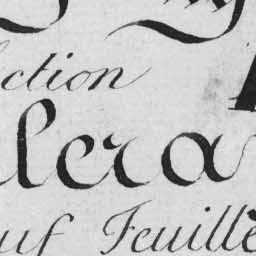 ction
lera
uf Feuille